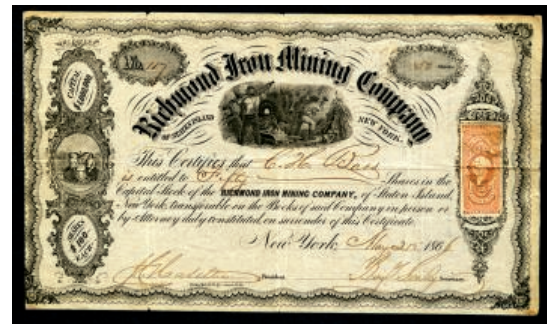 No. 117
50
Richmond Iron Mining Company
OF STATEN ISLAND NEW YORK.
CAPITAL
This Certifies that C. H.
is entitled to Fifty Shares in the
Capital Stock of the RICHMOND IRON MINING COMPANY, of Staten Island,
New York, transferable on the Books of said Company in person or
by Attorney duly constituted, on surrender of this Certificate.
New York, 186
President. Secretary.
SHARES
$100